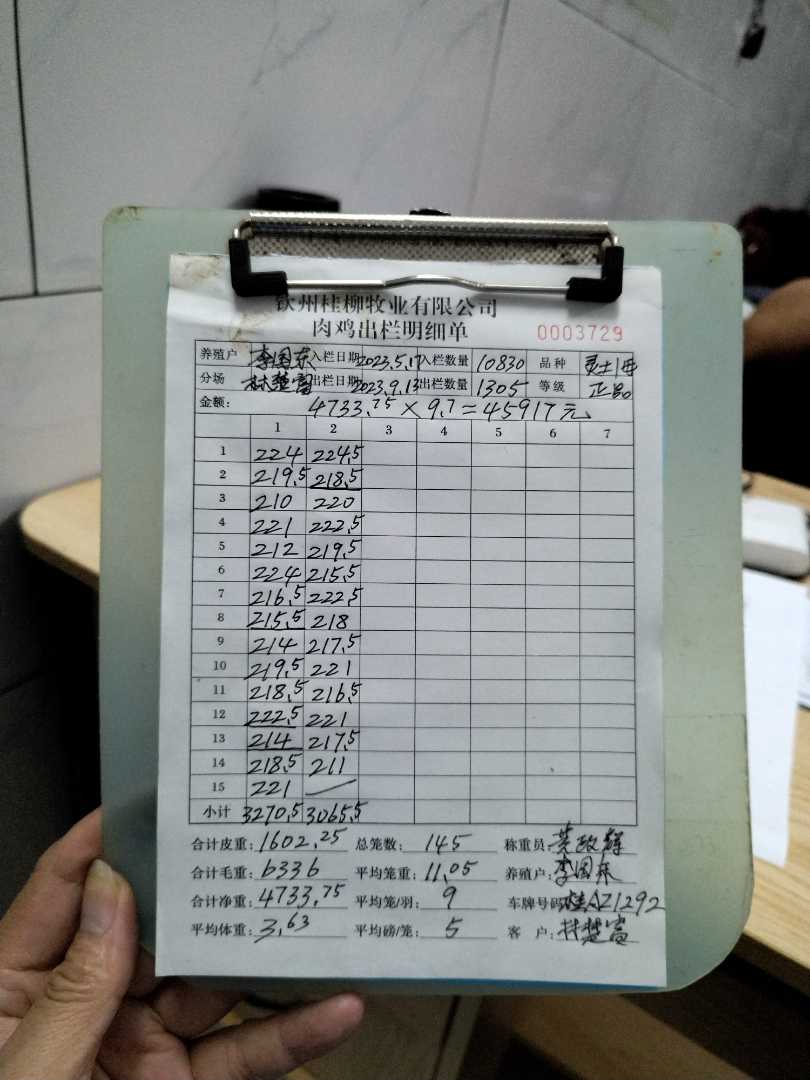 钦州桂柳牧业有限公司
肉鸡出栏明细单
0003729
养殖户 李国东 入栏日期 2023.5.17 入栏数量 10830 品种 灵土1号
分场 林楚富 出栏日期 2023.9.13 出栏数量 1305 等级 正品
金额: 4733.75×9.7=45917元
1 2 3 4 5 6 7
1 224 224.5
2 219.5 218.5
3 210 220
4 221 222.5
5 212 219.5
6 224 215.5
7 216.5 222.5
8 215.5 218
9 214 217.5
10 219.5 221
11 218.5 216.5
12 222.5 221
13 214 217.5
14 218.5 211
15 221 —
小计 3270.5 3065.5
合计皮重: 1602.25 总笼数: 145 称重员: 黄政辉
合计毛重: 6336 平均笼重: 11.05 养殖户: 李国东
合计净重: 4733.75 平均笼/羽: 9 车牌号码: 桂AZ1292
平均体重: 3.63 平均磅/笼: 5 客 户: 林楚富